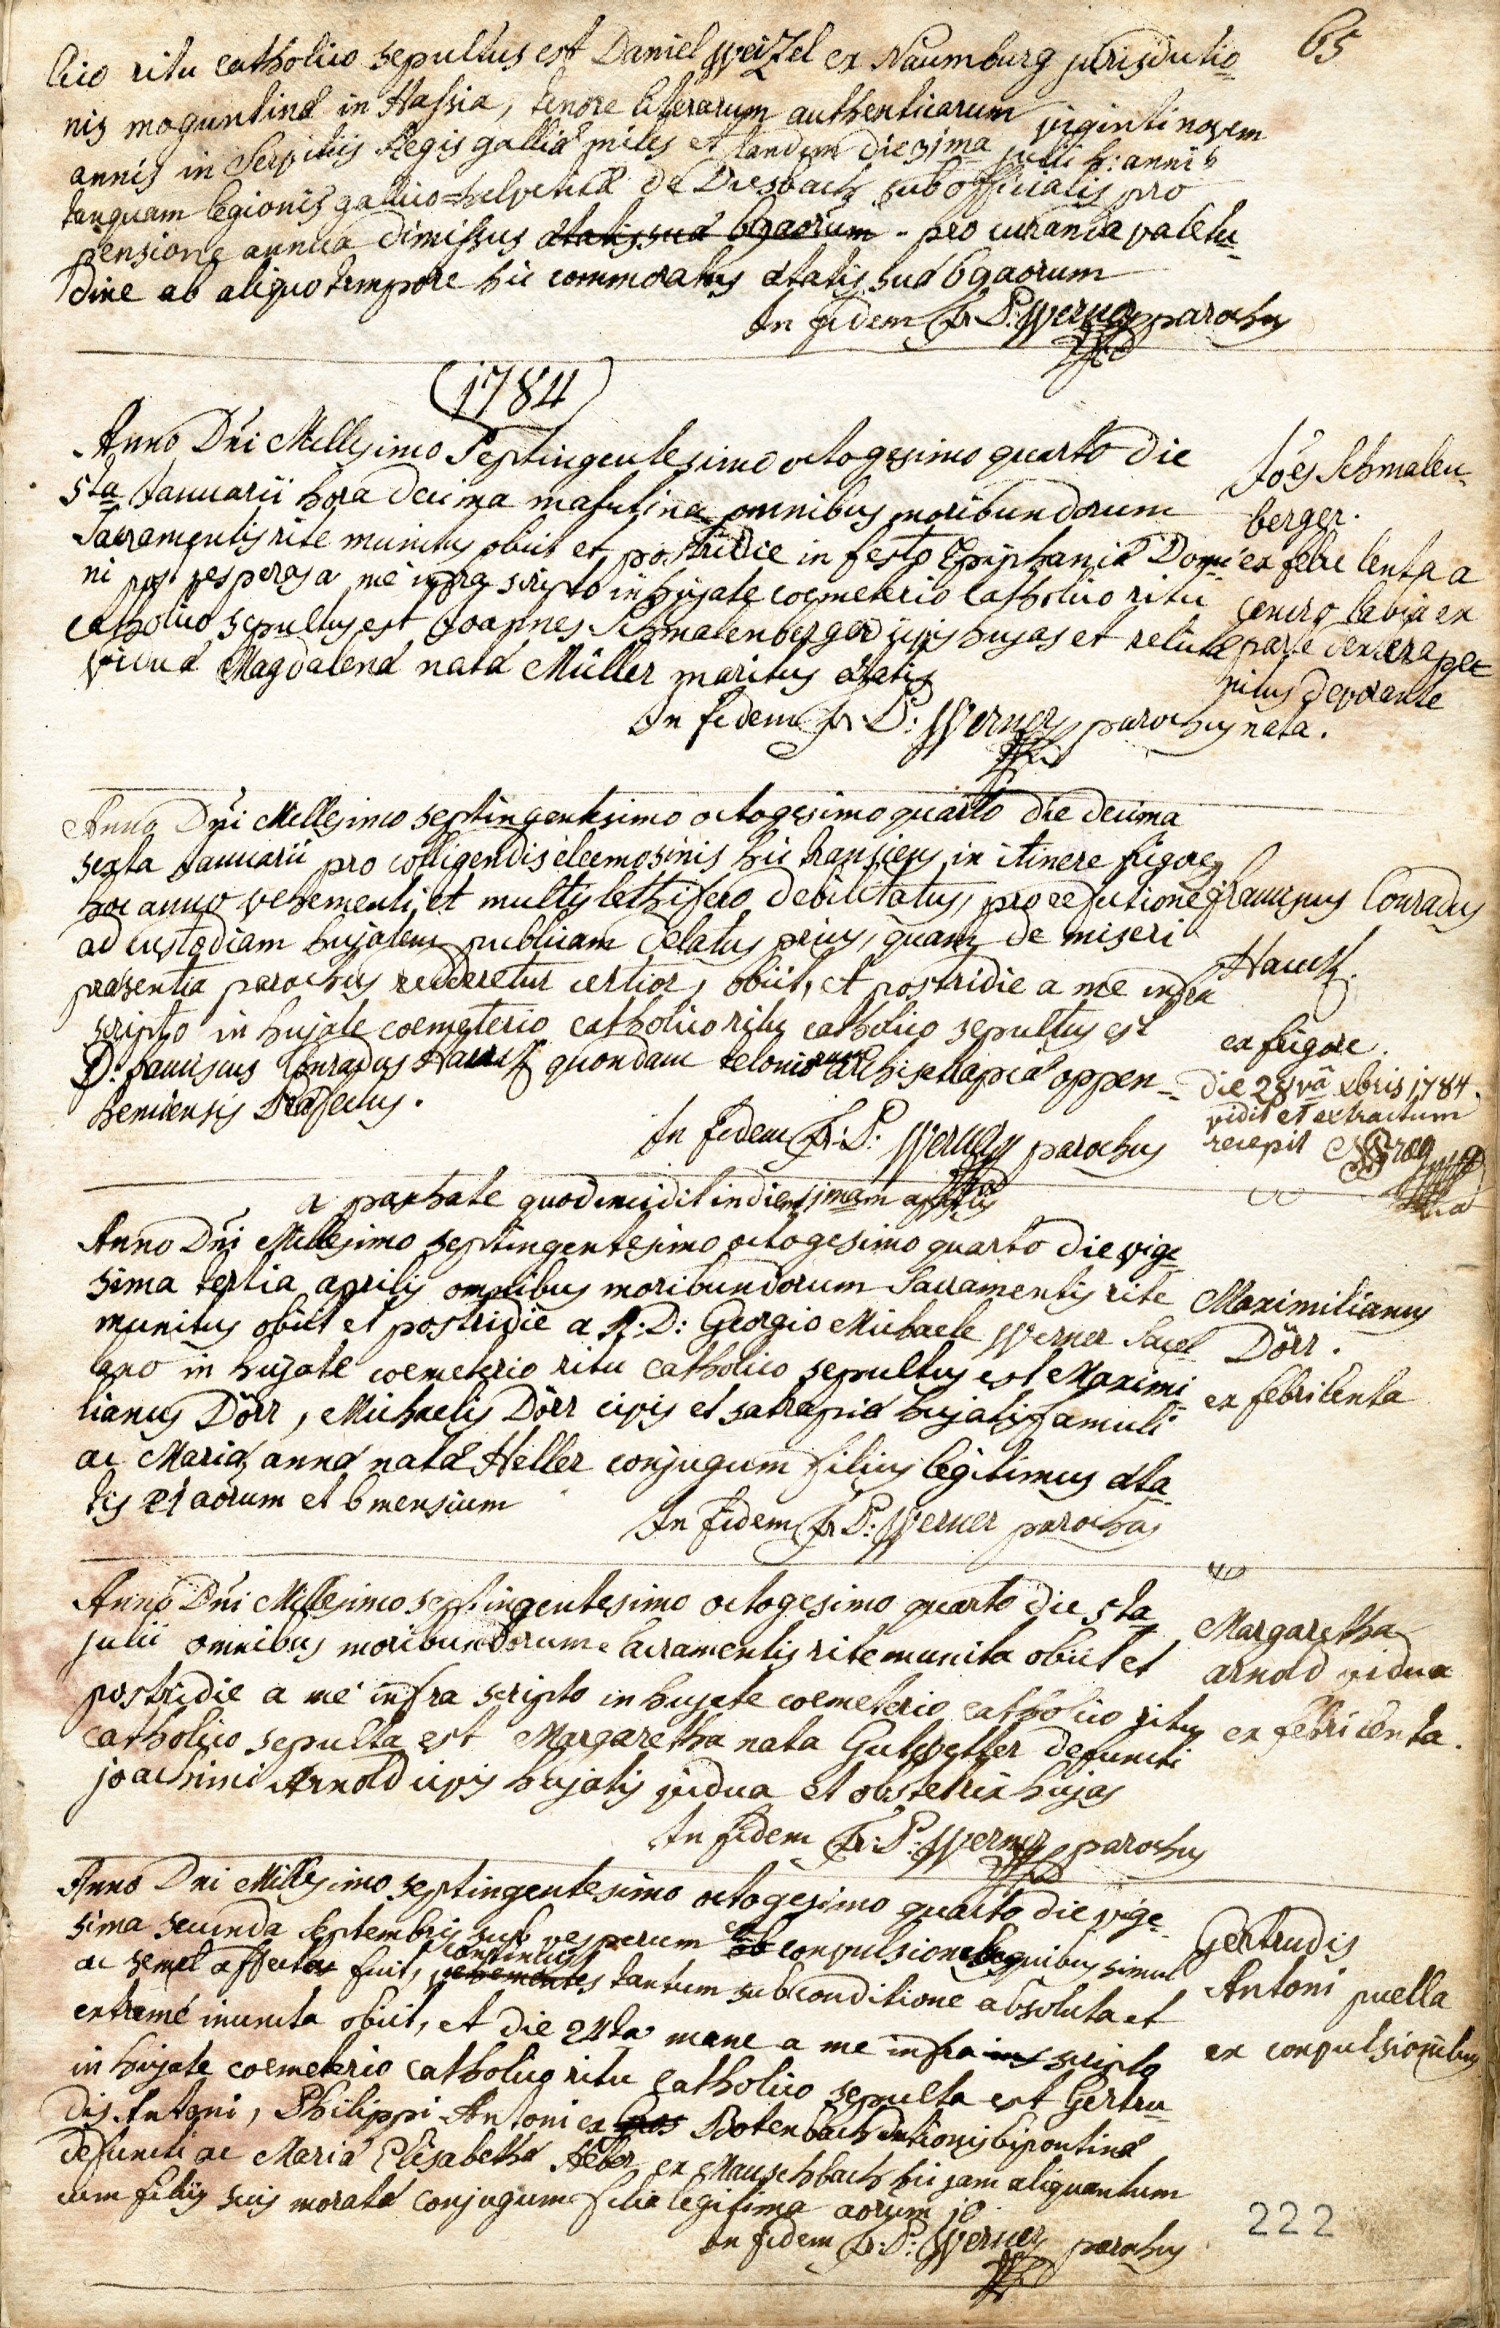 65
lico ritu catholico sepultus est Daniel Weizel ex Naumburg jurisdictio-
nis moguntinæ in Hassia, tenore literarum authenticarum viginti novem
annis in Servitiis Regis galliæ miles et tandem die 31ma julii h: anni
tanquam legionis gallico-helveticæ de Diesbach subofficialis pro
pensione annua dimissus ætatis suæ 69aorum - pro curanda valetu-
dine ab aliquo tempore hic commoratus ætatis suæ 69aorum
In fidem Fr. P: Werner parochus
1784
Anno Dñi Millesimo Septingentesimo octogesimo quarto die
5ta Januarii hora decima matutina omnibus moribundorum
Sacramentis rite munitus obiit et postridie in festo Epiphaniæ Domi-
ni post vesperas a me infra scripto in hujate coemeterio catholico ritu
catholico sepultus est Joannes Schmalenberger civis hujas et relictæ
viduæ Magdalenæ natæ Müller maritus ætatis
In fidem Fr. P: Werner parochus
Joes Schmalen-
berger.
ex febri lenta a
cancro labia ex
parte dextera pe-
nitus devorante
nata.
Anno Dñi Millesimo septingentesimo octogesimo quarto die decima
sexta Januarii pro colligendis eleemosinis hic transiens in itinere frigore
hoc anno vehementi et multis lethifero debilitatus, pro refectione
ad custodiam hujatem publicam delatus prius, quam de miseri
præsentia parochus redderetur certior, obiit, et postridie a me infra
scripto in hujate coemeterio catholico ritu catholico sepultus est
D: Franciscus Conradus Hauck quondam telonii satrapiæ oppen-
hemiensis Præfectus.
In fidem Fr: P: Werner parochus
Franciscus Conradus
Hauck.
ex frigore.
die 28vâ xbris 1784.
vidit et extractum
recepit
a paschate quod incidit in diem 11mam aprilis
Anno Dñi Millesimo septingentesimo octogesimo quarto die vige-
sima tertia aprilis omnibus moribundorum Sacramentis rite
munitus obiit et postridie a R: D: Georgio Michaele Werner Sacel-
lano in hujate coemeterio ritu catholico sepultus est Maximi-
lianus Dörr, Michaelis Dörr civis et satrapiæ hujatis famuli
ac Mariæ annæ natæ Heller conjugum filius legitimus æta-
tis 21 aorum et 6 mensium
In fidem Fr P: Werner parochus
Maximilianus
Dörr.
ex febri lenta
Anno Dñi Millesimo septingentesimo octogesimo quarto die 5ta
julii omnibus moribundorum Sacramentis rite munita obiit et
postridie a me infra scripto in hujate coemeterio catholico ritu
catholico sepulta est Margaretha nata Gutwetter defuncti
joachimi Arnold civis hujatis vidua et obstetrix hujas
In fidem Fr: P: Werner parochus
Margaretha
arnold vidua
ex febri lenta.
Anno Dni Millesimo septingentesimo octogesimo quarto die vige-
sima secunda Septembris sub vesperum ex convulsionibus quibus simul
ac semel affecta fuit, continuis vehementes tantum sub conditione absoluta et
extreme inuncta obiit, et die 24ta mane a me infra ins scripto
in hujate coemeterio catholico ritu catholico sepulta est Gertru-
dis Antoni, Philippi Antoni ex Botenbach ditionis bipontinæ
defuncti ac Mariæ Elisabethæ Heber ex Mauschbach hic jam aliquantum
cum filiis suis moratæ conjugum filia legitima aorum 10
In fidem Fr: P: Werner parochus
Gertrudis
Antoni puella
ex convulsionibus
222